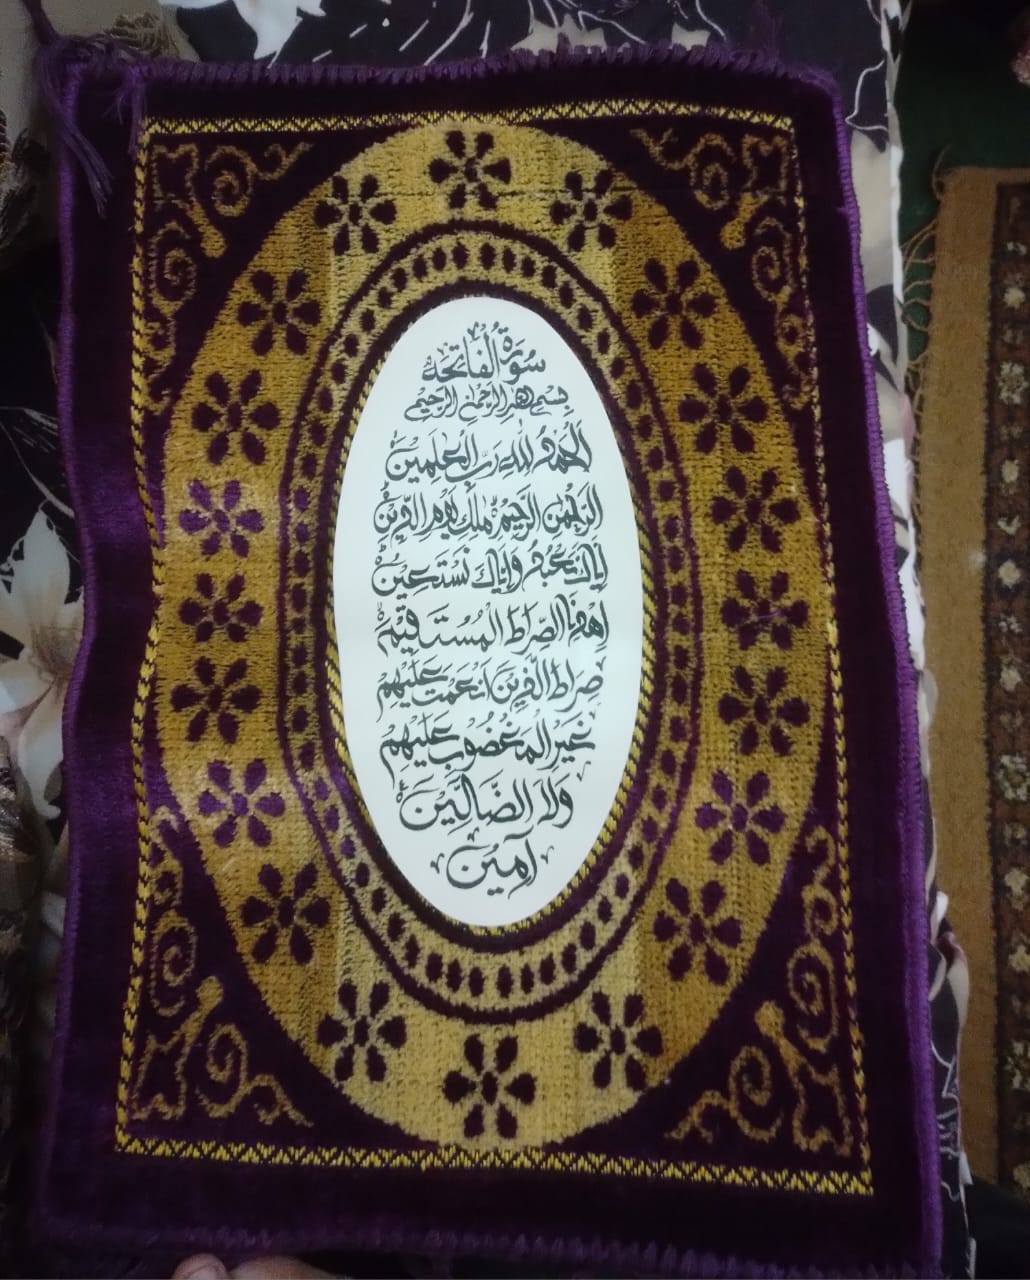 سُورَةُ الْفَاتِحَة
بِسْمِ اللهِ الرَّحْمٰنِ الرَّحِيْمِ
اَلْحَمْدُ لِلّٰهِ رَبِّ الْعٰلَمِيْنَ
الرَّحْمٰنِ الرَّحِيْمِ مٰلِكِ يَوْمِ الدِّيْنِ
اِيَّاكَ نَعْبُدُ وَاِيَّاكَ نَسْتَعِيْنُ
اِهْدِنَا الصِّرَاطَ الْمُسْتَقِيْمَ
صِرَاطَ الَّذِيْنَ اَنْعَمْتَ عَلَيْهِمْ
غَيْرِ الْمَغْضُوْبِ عَلَيْهِمْ
وَلَا الضَّالِّيْنَ
آمِيْن